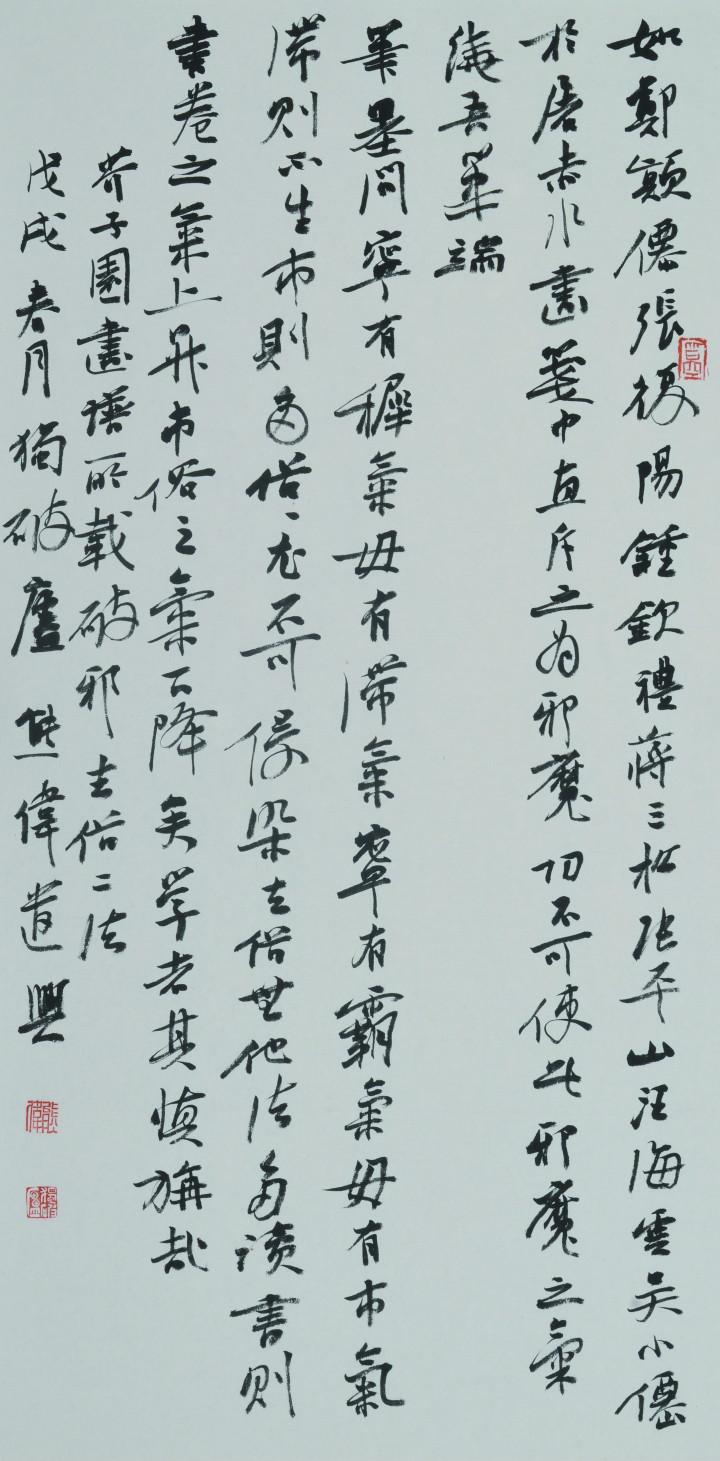 如鄭顛僊張復陽鍾欽禮蔣三松張平山汪海雲吳小僊
於屠赤水畫箋中直斥之為邪魔切不可使此邪魔之氣
繞吾筆端
筆墨間寧有穉氣毋有滯氣寧有霸氣毋有市氣
滯則不生市則多俗〻尤不可侵染去俗無他法多讀書則
書卷之氣上升市俗之氣下降矣學者其慎旃哉
芥子園畫譜所載破邪去俗二法
戊戌春月獨破廬熊偉遣興
熊偉